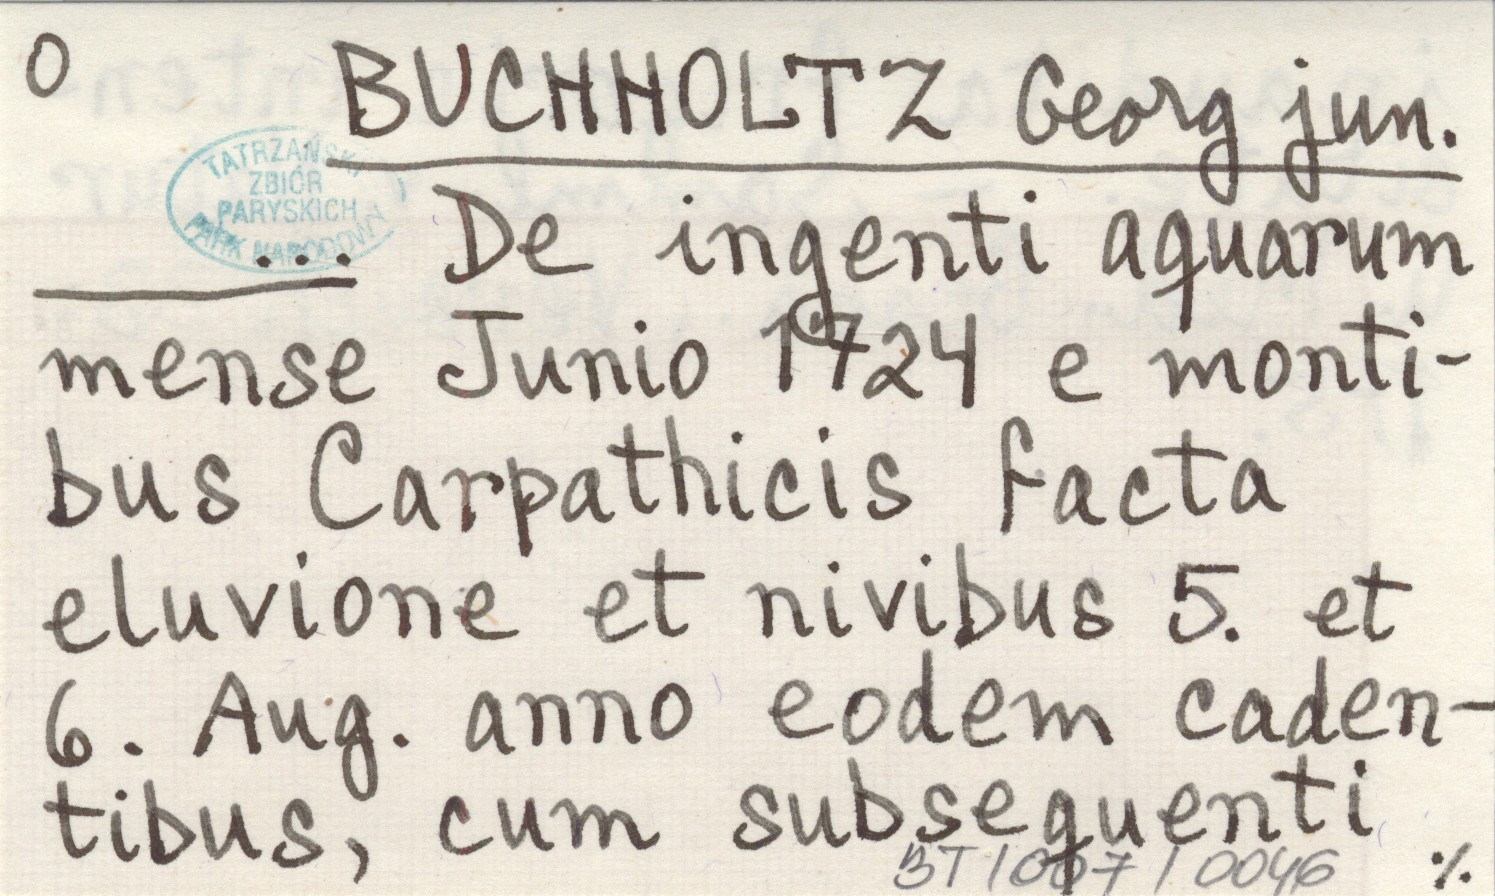 O BUCHHOLTZ Georg jun.
TATRZAŃSKI
ZBIÓR
PARYSKICH
PARK NARODOWY
... De ingenti aquarum
mense Junio 1724 e monti-
bus Carpathicis facta
eluvione et nivibus 5. et
6. Aug. anno eodem caden-
tibus, cum subsequenti
BT/007/0046 ·/.